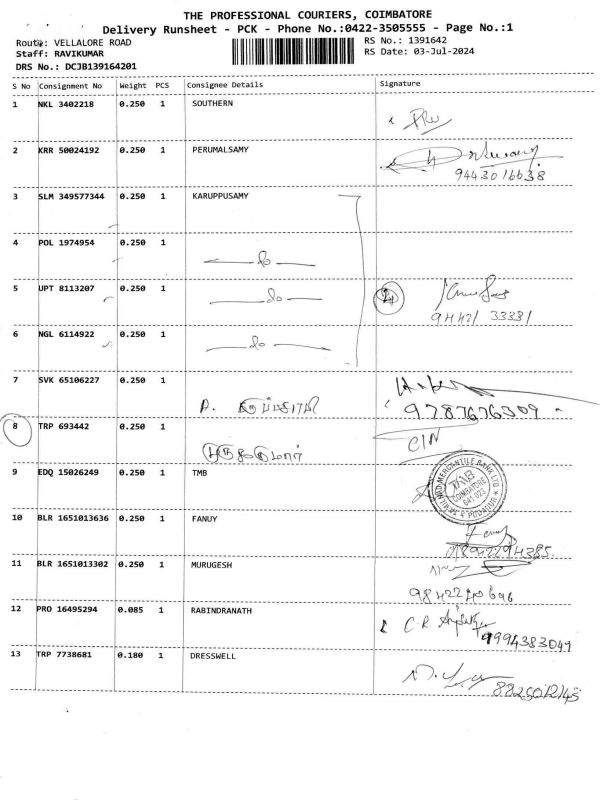 THE PROFESSIONAL COURIERS, COIMBATORE
Delivery Runsheet - PCK - Phone No.:0422-3505555 - Page No.:1
Route: VELLALORE ROAD
RS No.: 1391642
Staff: RAVIKUMAR
RS Date: 03-Jul-2024
DRS No.: DCJB139164201
S No Consignment No Weight PCS Consignee Details Signature
1 NKL 3402218 0.250 1 SOUTHERN
2 KRR 50024192 0.250 1 PERUMALSAMY
9443016638
3 SLM 349577344 0.250 1 KARUPPUSAMY
4 POL 1974954 0.250 1
5 UPT 8113207 0.250 1
94421 33331
6 NGL 6114922 0.250 1
7 SVK 65106227 0.250 1
9787676309
8 TRP 693442 0.250 1
C/N
9 EDQ 15026249 0.250 1 TMB
TAMILNAD MERCANTILE BANK LTD
TMB
COIMBATORE
641 023
PODANUR
10 BLR 1651013636 0.250 1 FANUY
11 BLR 1651013302 0.250 1 MURUGESH
12 PRO 16495294 0.085 1 RABINDRANATH
9994383049
13 TRP 7738681 0.180 1 DRESSWELL